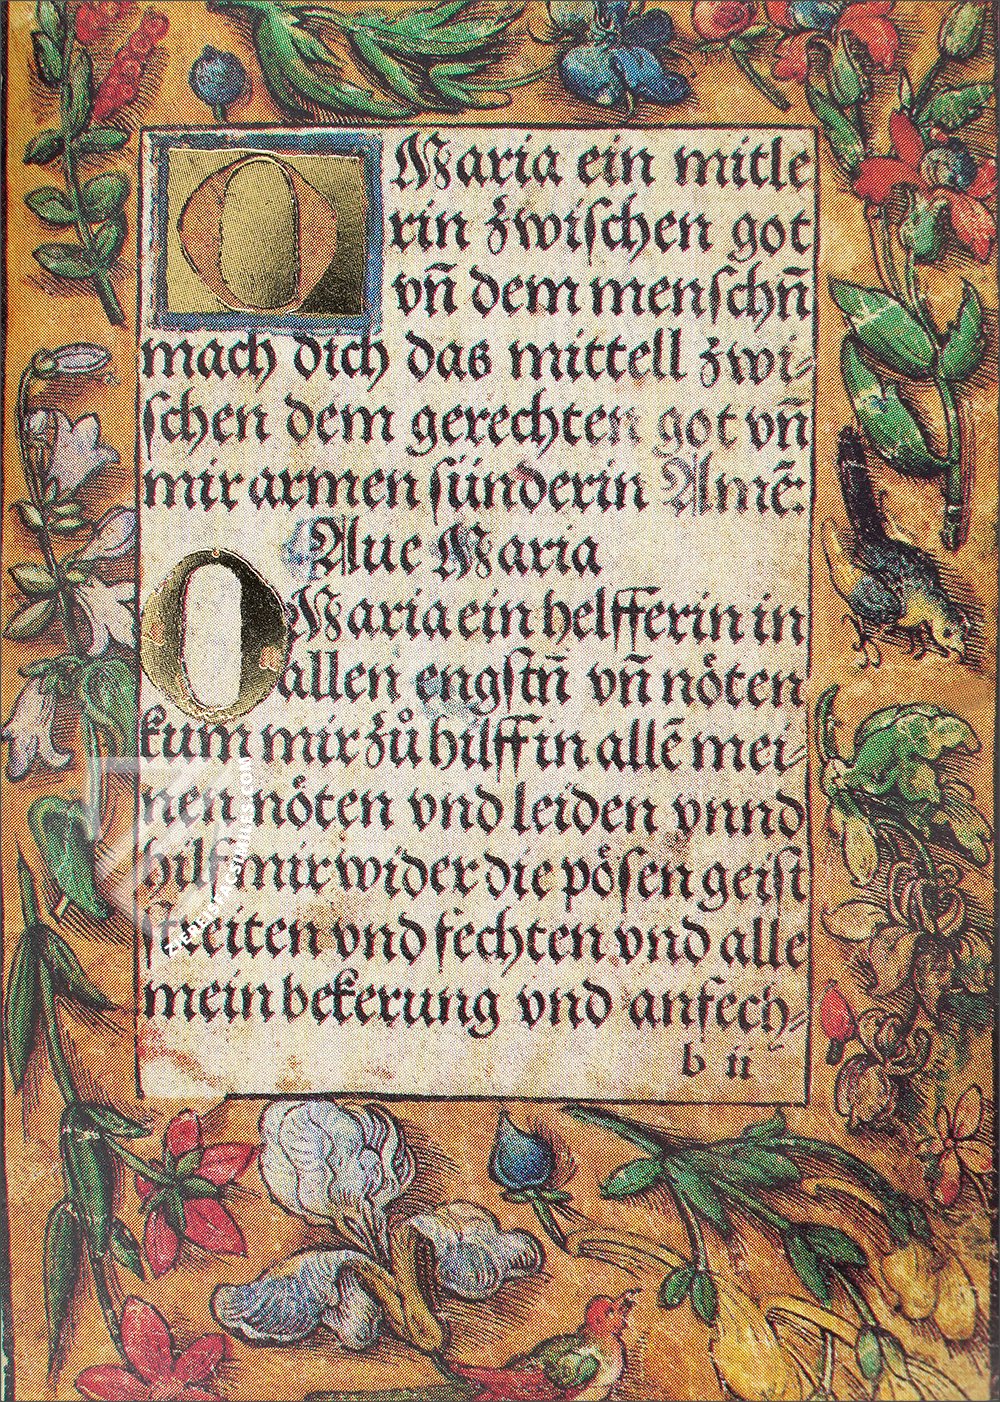 O Maria ein mitle
rin zwiſchen got
vn̄ dem menſchn̄
mach dich das mittell zwi⸗
ſchen dem gerechten got vn̄
mir armen ſünderin Amē:
Aue Maria
O Maria ein helfferin in
allen engſtn̄ vn̄ nöten
kum mir zů hilff in allē mei⸗
nen nöten vnd leiden vnnd
hilf mir wider die pöſen geiſt
ſtreiten vnd fechten vnd alle
mein bekerung vnd anfech⸗
b ii
ZIEREIS FACSIMILES.COM